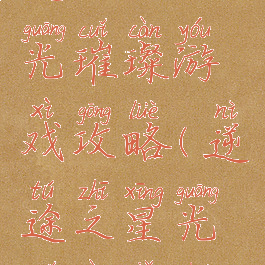 guāng cuǐ càn yóu
光璀璨游
xì gōng lüè nì
戏攻略(逆
tú zhī xīng guāng
途之星光